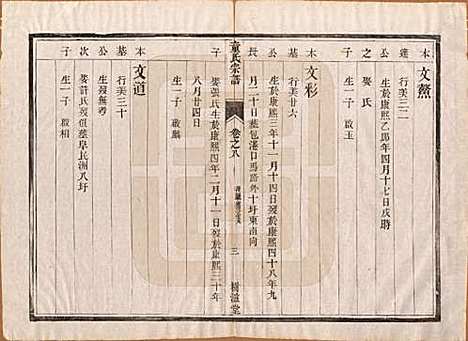 本 文鰲
達 行美三二
公 生於康熙乙卯年四月十七日戌時
之 娶氏
子 生一子 啟玉
本 文彩
基 行美廿六
公 生於康熙三年十一月十四日歿於康熙四十八年九
長 月二十日葬包港口馬路外十圩東南向
娶張氏生於康熙四年二月十一日歿於康熙三十年
子 八月廿四日
生一子 啟麟
童氏宗譜
卷之八
三
樹滋堂
本 文道
基 行美三十
公 生歿無考
次 娶許氏歿俱葬阜民洲八圩
子 生一子 啟相